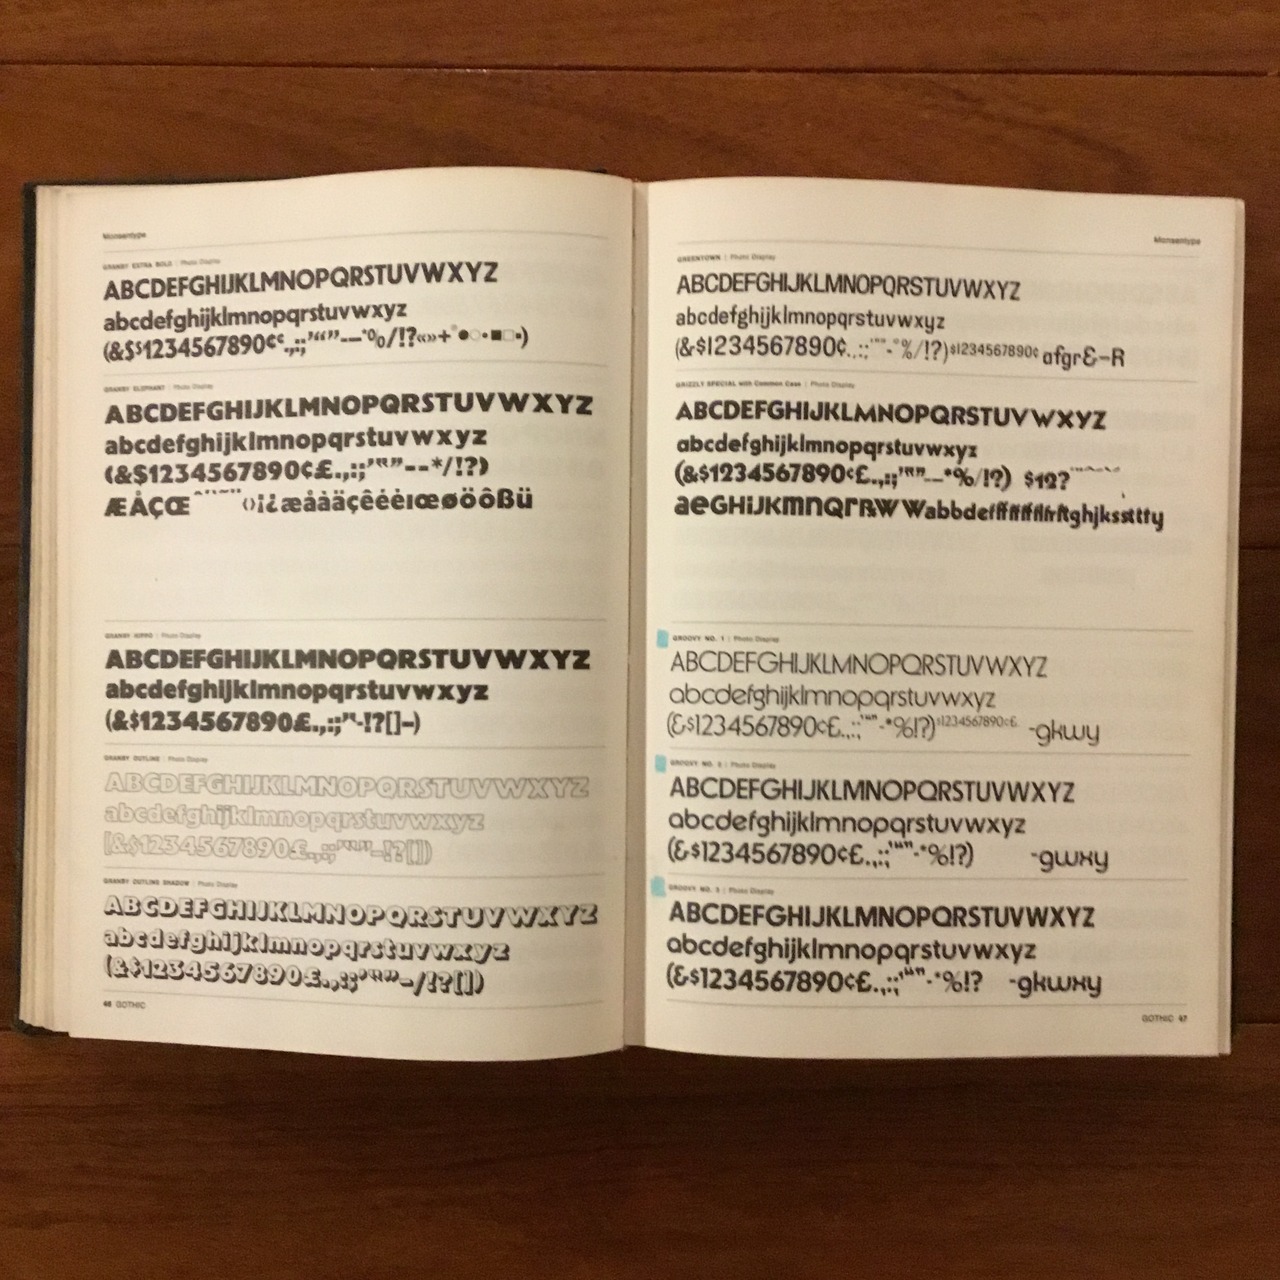 Monsentype
GRANBY EXTRA BOLD | Photo Display
ABCDEFGHIJKLMNOPQRSTUVWXYZ
abcdefghijklmnopqrstuvwxyz
(&$1234567890¢.,:;’“”-–*%/!?«»+°●○•■□▪)
GRANBY ELEPHANT | Photo Display
ABCDEFGHIJKLMNOPQRSTUVWXYZ
abcdefghijklmnopqrstuvwxyz
(&$1234567890¢£.,:;’“”--*/!?)
ÆÅÇŒ ‹›¡¿æåàäçêéèıœøöôßü
GRANBY HIPPO | Photo Display
ABCDEFGHIJKLMNOPQRSTUVWXYZ
abcdefghijklmnopqrstuvwxyz
(&$1234567890£.,:;’‘-!?[]–)
GRANBY OUTLINE | Photo Display
ABCDEFGHIJKLMNOPQRSTUVWXYZ
abcdefghijklmnopqrstuvwxyz
(&$1234567890£.,:;’“”–!?[])
GRANBY OUTLINE SHADOW | Photo Display
ABCDEFGHIJKLMNOPQRSTUVWXYZ
abcdefghijklmnopqrstuvwxyz
(&$1234567890£.,:;’“”–/!?[])
46 GOTHIC
Monsentype
GREENTOWN | Photo Display
ABCDEFGHIJKLMNOPQRSTUVWXYZ
abcdefghijklmnopqrstuvwxyz
(&$1234567890¢.,:;’“”-*%/!?)$1234567890¢ afgr&–R
GRIZZLY SPECIAL with Common Case | Photo Display
ABCDEFGHIJKLMNOPQRSTUVWXYZ
abcdefghijklmnopqrstuvwxyz
(&$1234567890¢£.,:;’“”-–*%/!?) $12?
GROOVY NO. 1 | Photo Display
ABCDEFGHIJKLMNOPQRSTUVWXYZ
abcdefghijklmnopqrstuvwxyz
(&$1234567890¢£.,:;’“”-*%!?)$1234567890¢£ -gkwy
GROOVY NO. 2 | Photo Display
ABCDEFGHIJKLMNOPQRSTUVWXYZ
abcdefghijklmnopqrstuvwxyz
(&$1234567890¢£.,:;’“”-*%!?) -gwxy
GROOVY NO. 3 | Photo Display
ABCDEFGHIJKLMNOPQRSTUVWXYZ
abcdefghijklmnopqrstuvwxyz
(&$1234567890¢£.,:;’“”-*%!? -gkwxy
GOTHIC 47